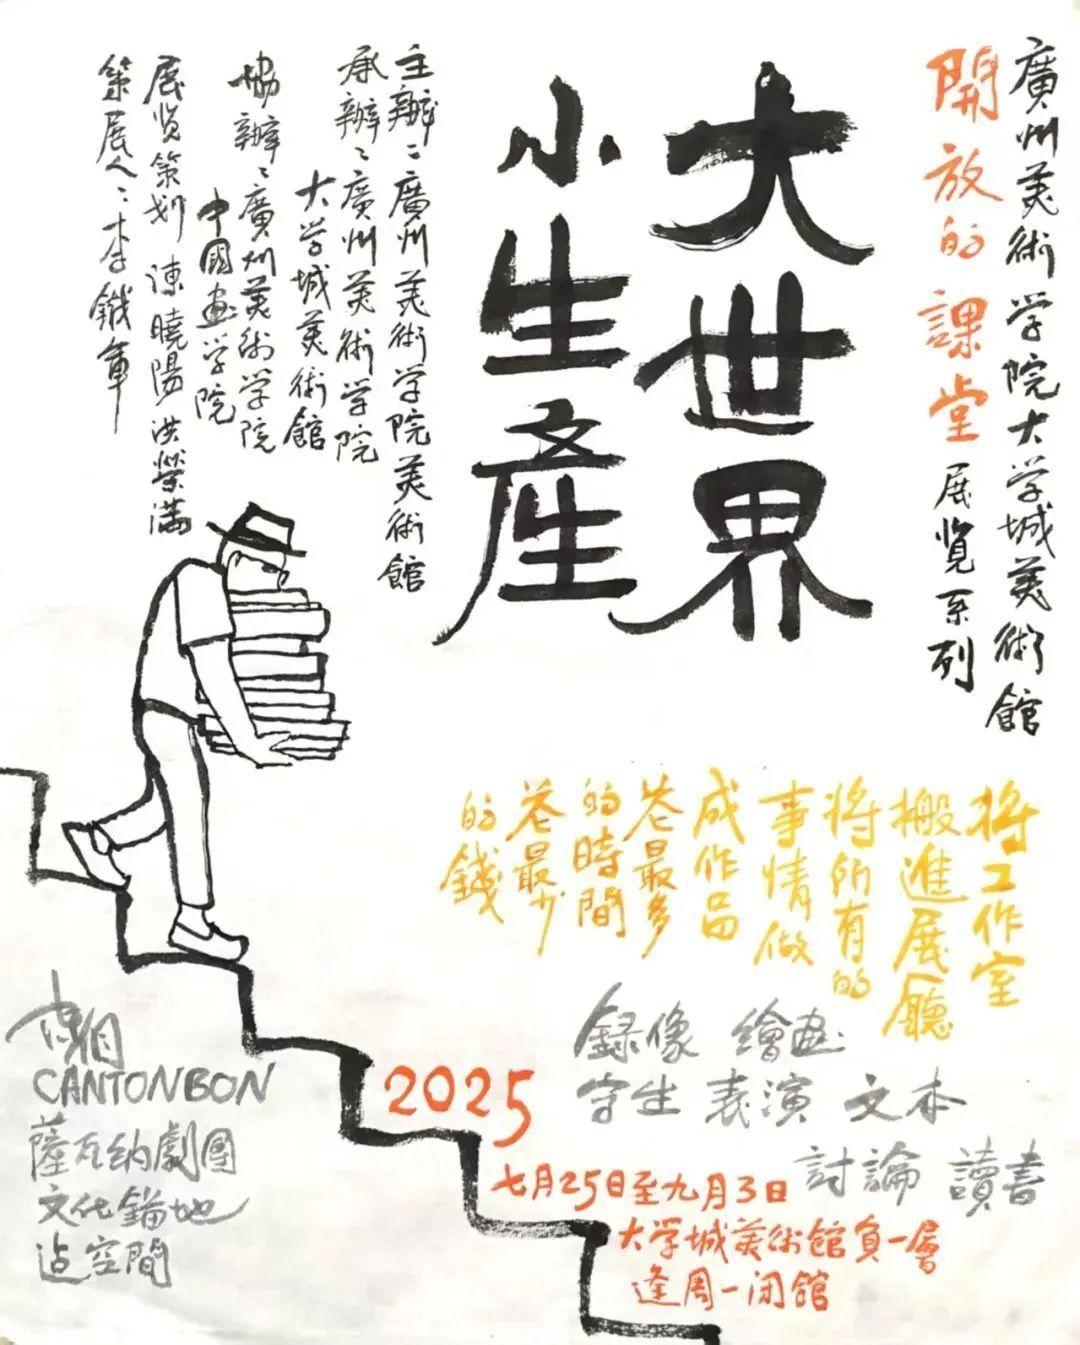 廣州美術学院大学城美術館
開放的課堂展览系列
大世界
小生産
主辦：廣州美術学院美術館
承辦：廣州美術学院
大学城美術館
協辦：廣州美術学院
中國画学院
展览策划 陳曉陽 洪榮满
策展人：李鐵軍
将工作室
搬進展廳
将所有的
事情做
成作品
花最多
的時間
花最少
的錢
録像 繪画
写生 表演 文本
討論 讀書
CANTONBON
薩瓦纳劇團
文化錨地
站空間
2025
七月25日至九月3日
大学城美術館負一層
逢周一闭館